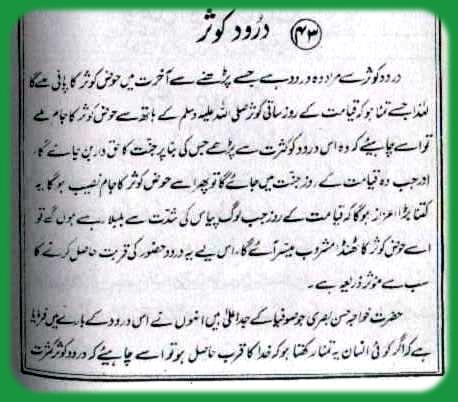 ۴۳ درود کوثر
درود کوثر سے مراد وہ درود ہے جسے پڑھنے سے آخرت میں حوض کوثر کا پانی ملے گا
لہٰذا جسے تمنا ہو کہ قیامت کے روز ساقی کوثر صلی اللہ علیہ وسلم کے ہاتھ سے حوض کوثر کا جام ملے
تو اسے چاہیئے کہ وہ اس درود کو کثرت سے پڑھے جس کی بنا پر جنت کا حق دار بن جائے گا،
اور جب وہ قیامت کے روز جنت میں جائے گا تو پھر اسے حوض کوثر کا جام نصیب ہوگا یہ
کتنا بڑا اعزاز ہوگا کہ قیامت کے روز جب لوگ پیاس کی شدت سے بلبلا رہے ہوں گے تو
اسے حوض کوثر کا ٹھنڈا مشروب میسر آئے گا۔ اس لیے یہ درود حضور کی قربت حاصل کرنے کا
سب سے مؤثر ذریعہ ہے۔
حضرت خواجہ حسن بصری جو صوفیا کے جد اعلیٰ ہیں انہوں نے اس درود کے بارے میں فرمایا
ہے کہ اگر کوئی انسان یہ تمنا رکھتا ہو کہ خدا کا قرب حاصل ہو تو اسے چاہیئے کہ درود کوثر کثرت